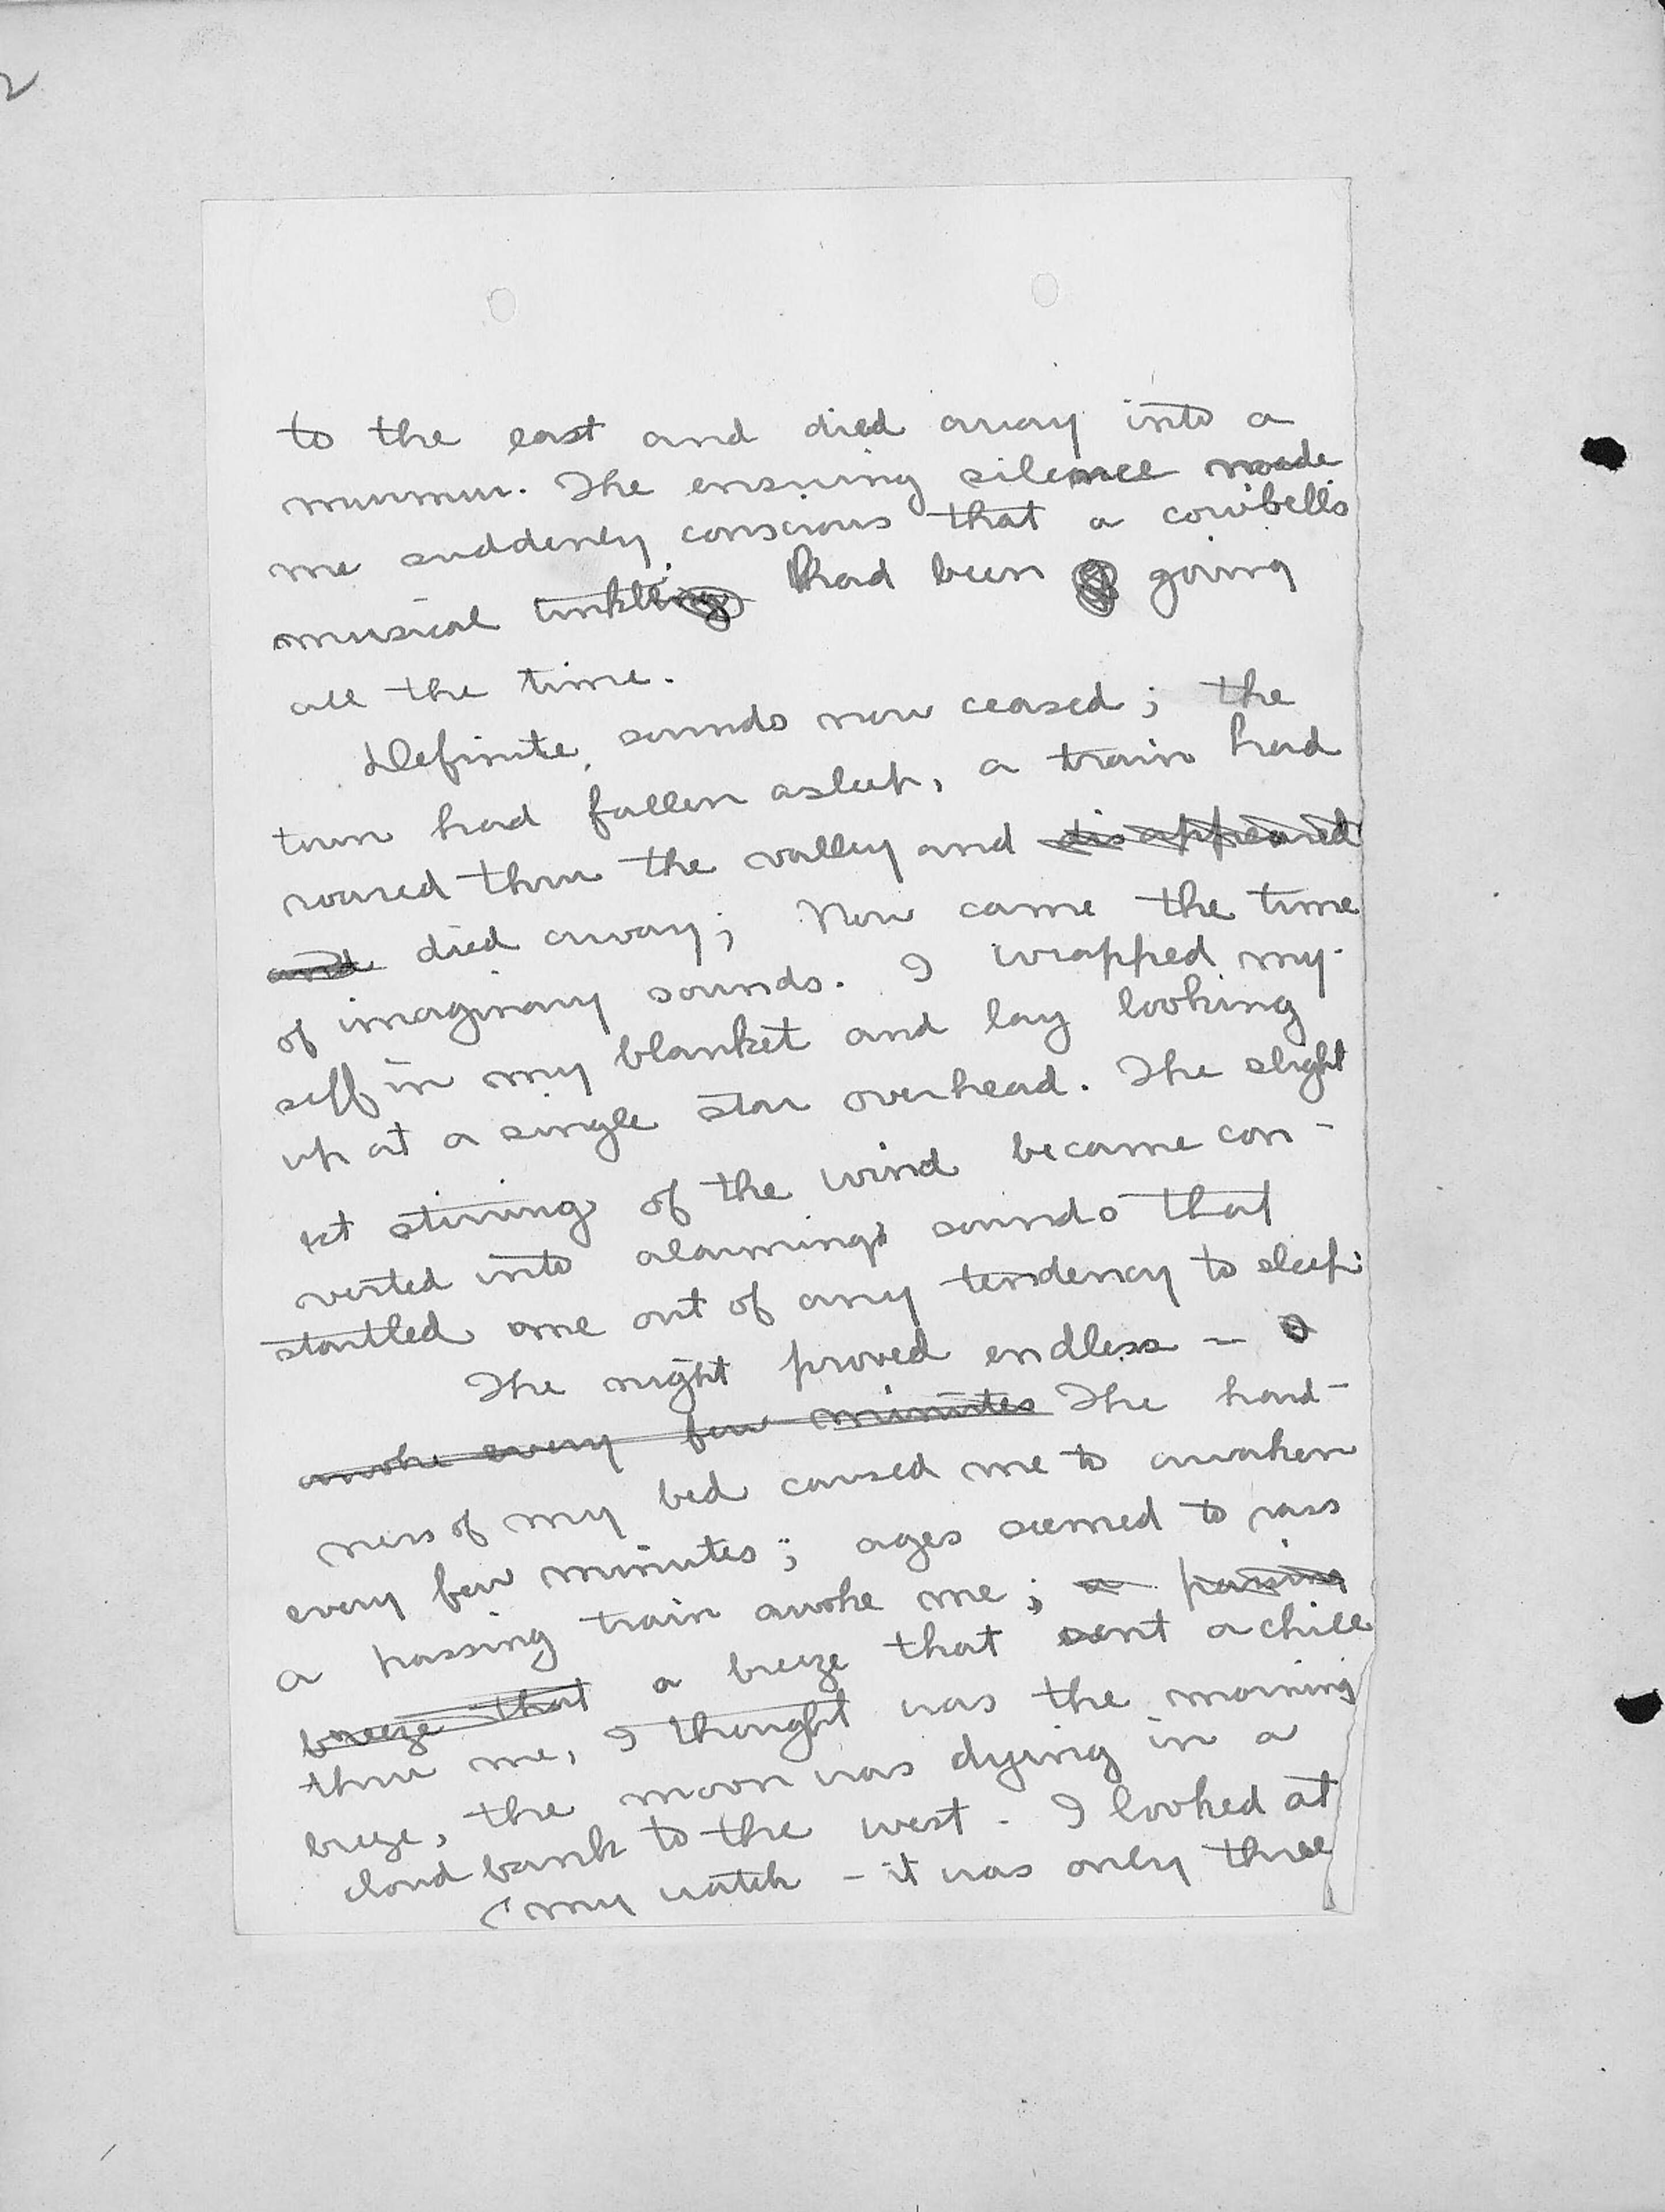 2
to the east and died away into a
murmur. The ensuing silence made
me suddenly conscious that a cowbells
musical tinkling had been going
all the time.
Definite, sounds now ceased; the
town had fallen asleep, a train had
roared thru the valley and disappeared
and died away; Now came the time
of imaginary sounds. I wrapped my-
self in my blanket and lay looking
up at a single star overhead. The slight
est stirring of the wind became con-
verted into alarming sounds that
startled me out of any tendency to sleep.
The night proved endless -
awoke every few minutes The hard-
ness of my bed caused me to awaken
every few minutes; ages seemed to pass
a passing train awoke me; a passing
breeze that a breeze that sent a chill
thru me, I thought was the morning
breeze, the moon was dying in a
cloud bank to the west. I looked at
my watch - it was only three